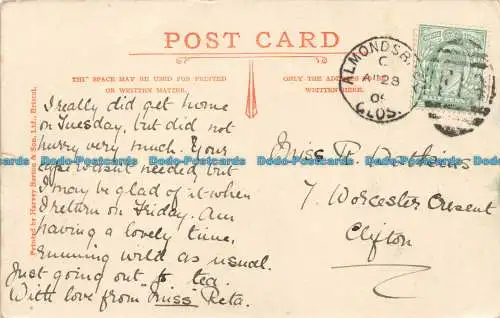 POST CARD
THIS SPACE MAY BE USED FOR PRINTED
OR WRITTEN MATTER.
ONLY THE ADDRESS TO BE
WRITTEN HERE.
ALMONDSB
C
AU 28
GLOS.
I really did get home
on Tuesday, but did not
hurry very much. Your
wasn't needed but
I may be glad of it when
I return on Friday. Am
having a lovely time,
running wild as usual.
Just going out to tea.
With love from "Miss" Reta.
Miss R.
7. Worcester Cresent
Clifton
Printed by Harvey Barton & Son, Ltd., Bristol.
Postcards